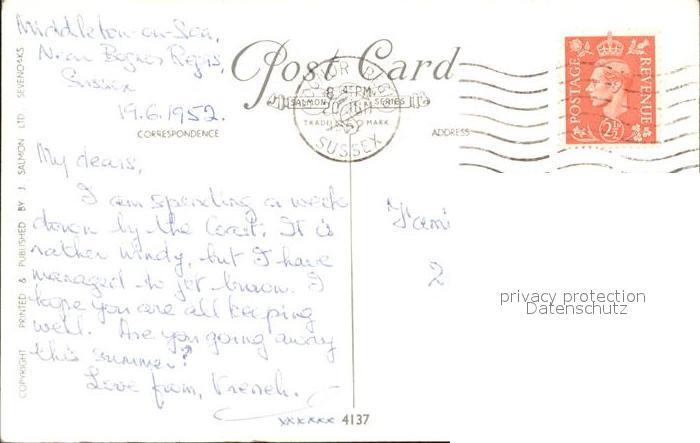 Middleton-on-Sea,
Near Bognor Regis,
Sussex
19.6.1952.
Post Card
SALMON SERIES
TRADE MARK
BOGNOR REGIS
8 - PM
20 JUN
1952
SUSSEX
POSTAGE REVENUE
2½D
CORRESPONDENCE
ADDRESS
My dears,
I am spending a week
down by the Coast. It is
rather windy, but I have
managed to get brown. I
hope you are all keeping
well. Are you going away
this summer?
Love from,
xxxxxx 4137
Fami
2
privacy protection
Datenschutz
COPYRIGHT PRINTED & PUBLISHED BY J. SALMON LTD SEVENOAKS